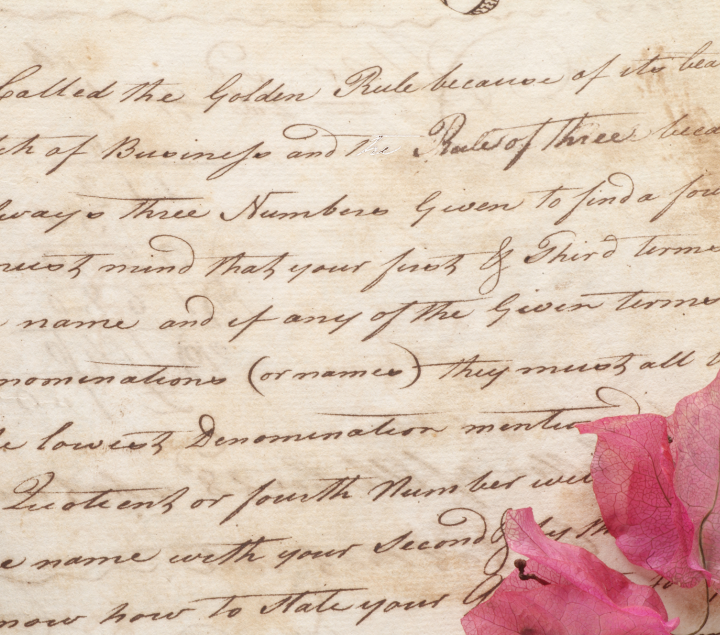 Called the Golden Rule because of its bea
ch of Business and the Rule of three beca
lways three Numbers Given to find a fou
must mind that your first & Third terms
name and if any of the Given terms
nominations (or names) they must all b
e lowest Denomination mention
Quotient or fourth Number will
e name with your Second & by th
now how to State your